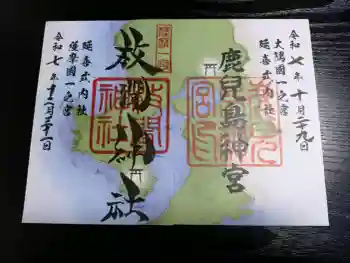 令和七年十月二十九日
大隅國一之宮
延喜式内社
鹿兒島神宮
枚聞神社
延喜式内社
薩摩國一之宮
令和七年